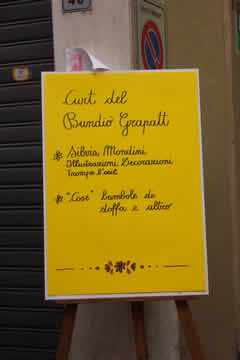 40
Curt del
Bundiò Grapatt
Silvia Mondini
Illustrazioni Decorazioni
Trompe l'oeil
"Cose" bambole de
stoffa e altro